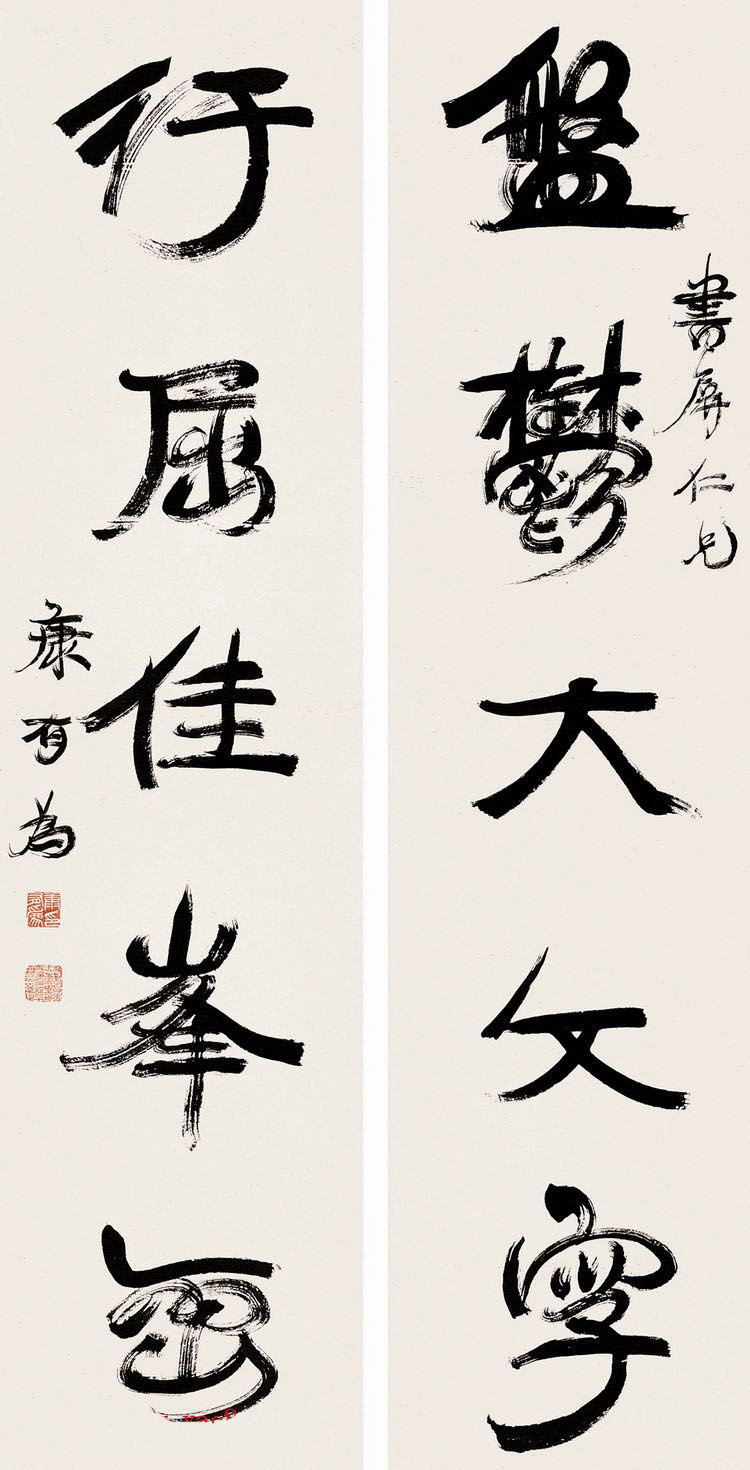 盤鬱大文字
書屏仁兄
行屈佳峯巒
康有為